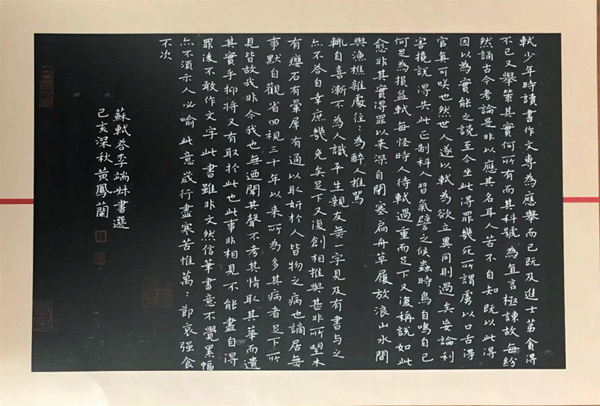 軾少年時讀書作文專為應舉而已既及進士第貪得
不已又舉策其實何所有而其科號為直言極諫故每紛
然誦古今考論是非以應其名耳人苦不自知既以此得
因以為實能之談至今坐此得罪幾死所謂虜以口舌得
官真可咲也然世人遂以軾為欲立異同則過矣妄論利
害攙說得失此正制科人習氣譬之候蟲時鳥自鳴自已
何足為損益軾每怪時人待軾過重而足下又復稱說如此
愈非其實得罪以來深自閉塞扁舟草履放浪山水間
與漁樵雜處往:為醉人推罵
輒自喜漸不為人識平生親友無一字見及有書與之
亦不答自幸庶幾免矣足下又復創相推與甚非所望木
有癭石有暈犀有通以取妍於人皆物之病也謫居無
事默自觀省回視三十年以來所為多其病者足下所
見皆故我非今我也無迺聞其聲不考其情取其華而遺
其實乎抑將又有取於此也此事非相見不能盡自得
罪後不敢作文字此書雖非文然信筆書意不覺累幅
亦不須示人必喻此意歲行盡寒苦惟萬:節哀強食
不次
蘇軾答李端叔書選
己亥深秋黃鳳蘭